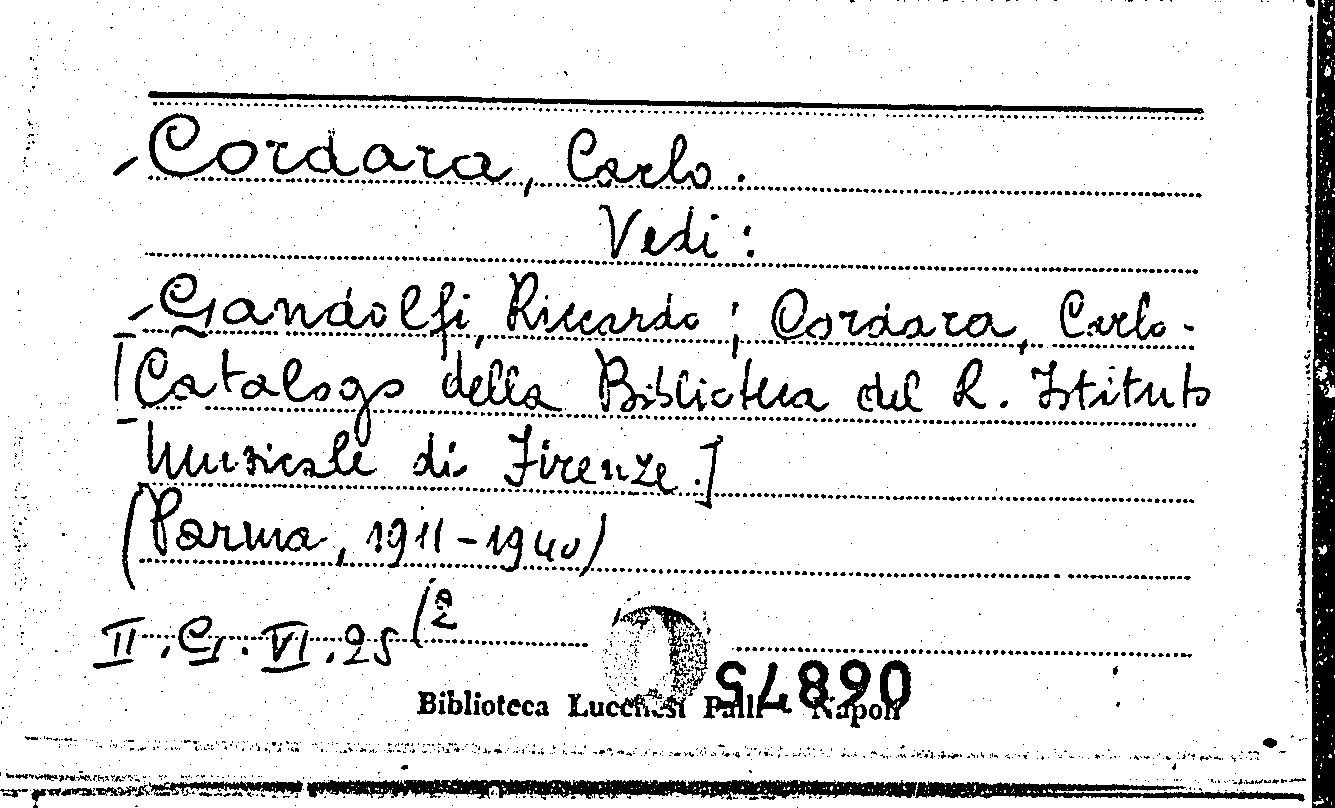 Cordara, Carlo.
Vedi:
Gandolfi, Riccardo; Cordara, Carlo -
[Catalogo della Biblioteca del R. Istituto
Musicale di Firenze.]
(Parma, 1911-1940)
II.G.VI.25(2
068875
Biblioteca Lucchesi Palli - Napoli